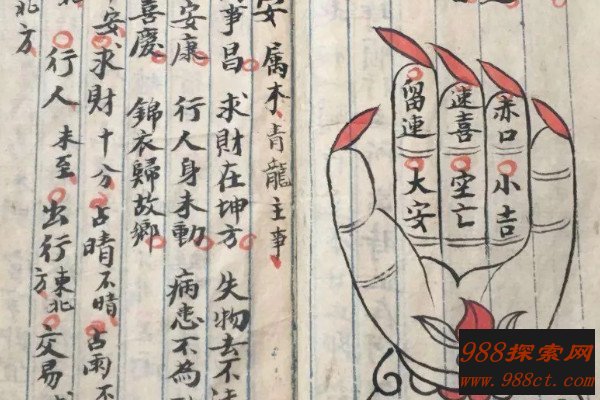 留連
速喜
赤口
大安
空亡
小吉
安 属木青龍主事
事昌 求財在坤方 失物去不
安康 行人身未動 病患不為
喜慶 錦衣歸故鄉
安求財十分占晴不晴占雨不
行人未至出行東北方交易
北方
988探索网
www.988ct.com